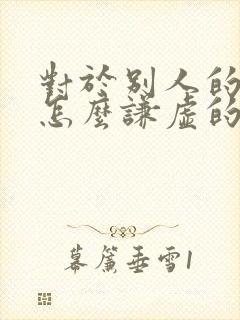 對於別人的
怎麼謙虛的
幕簾垂雪1